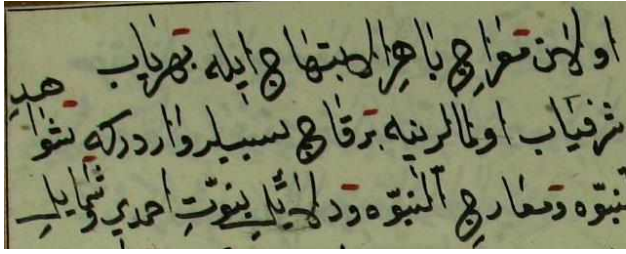 اولان معراج باهر الابتهاج ايله بهرياب
شرفياب اولنلرينه برقاج سبيلر واردركه شواهد
نبوّه ومعارج النبوّه ودلائل نبوّت احمدى وشمايل